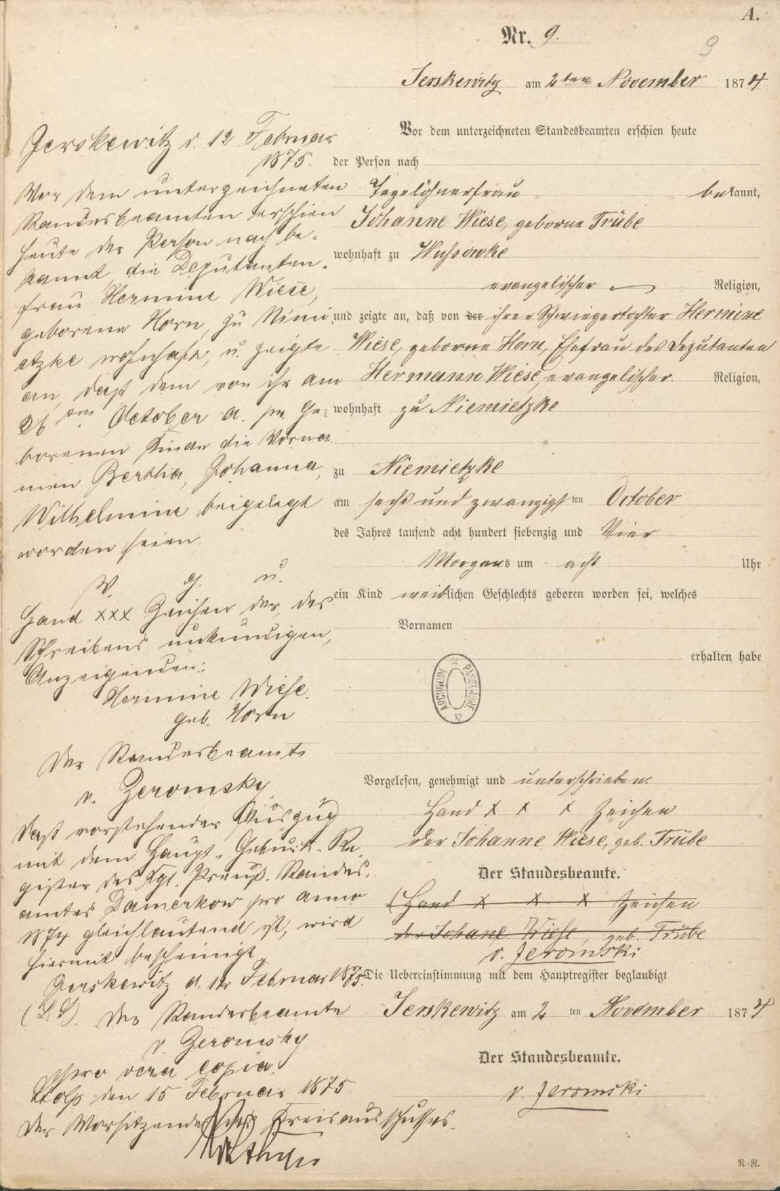 A.
Nr. 9.
9
Jerskewitz am 2ten November 1874
Vor dem unterzeichneten Standesbeamten erschien heute
der Person nach
Tagelöhnerfrau bekannt,
Johanne Wiese, geborne Trübe
wohnhaft zu Wussowke
evangelischer Religion,
und zeigte an, daß von der ihrer Schwiegertochter Hermine
Wiese, geborne Horn, Ehefrau des Deputanten
Hermann Wiese, evangelischer Religion,
wohnhaft zu Niemietzke
zu Niemietzke
am sechs und zwanzigsten October
des Jahres tausend acht hundert siebenzig und Vier
Morgens um acht Uhr
ein Kind weiblichen Geschlechts geboren worden sei, welches
Vornamen
erhalten habe
Vorgelesen, genehmigt und unterschrieben
Hand x x x Zeichen
der Johanne Wiese, geb. Trübe
Der Standesbeamte.
(Hand x x x Zeichen
der Johane Wiese geb. Trübe
v. Jeromski
Die Uebereinstimmung mit dem Hauptregister beglaubigt
Jerskewitz am 2 ten November 1874
Der Standesbeamte.
v. Jeromski
Jerskewitz d. 12 Februar
1875.
Vor dem unterzeichneten
Standesbeamten erschien
heute der Person nach be-
kannt die Deputanten-
frau Hermine Wiese,
geborene Horn, zu Nimi
etzke wohnhaft, u. zeigte
an, daß dem von ihr am
26ten October a. pr. ge-
borenen Kinde die Vorna
men Bertha, Johanna,
Wilhelmine beigelegt
worden seien
V. g. u.
Hand xxx Zeichen der des
Schreibens unkundigen,
Anzeigenden:
Hermine Wiese.
geb. Horn
Der Standesbeamte
v. Zeromsky
Daß vorstehender Auszug
mit dem Haupt-Geburts-Re
gister des Kgl. Preuß. Standes-
amtes Damerkow pro anno
1874 gleichlautend ist, wird
hiermit bescheinigt.
Jerskewitz d. 12 Februar 1875
(L.S.). Der Standesbeamte
v. Zeromsky
pro vera copia.
Stolp den 15 Februar 1875
Der Vorsitzende des Kreisausschusses.
R.-R.